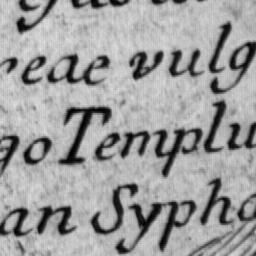 reae vulg
go Templu
an Sypha